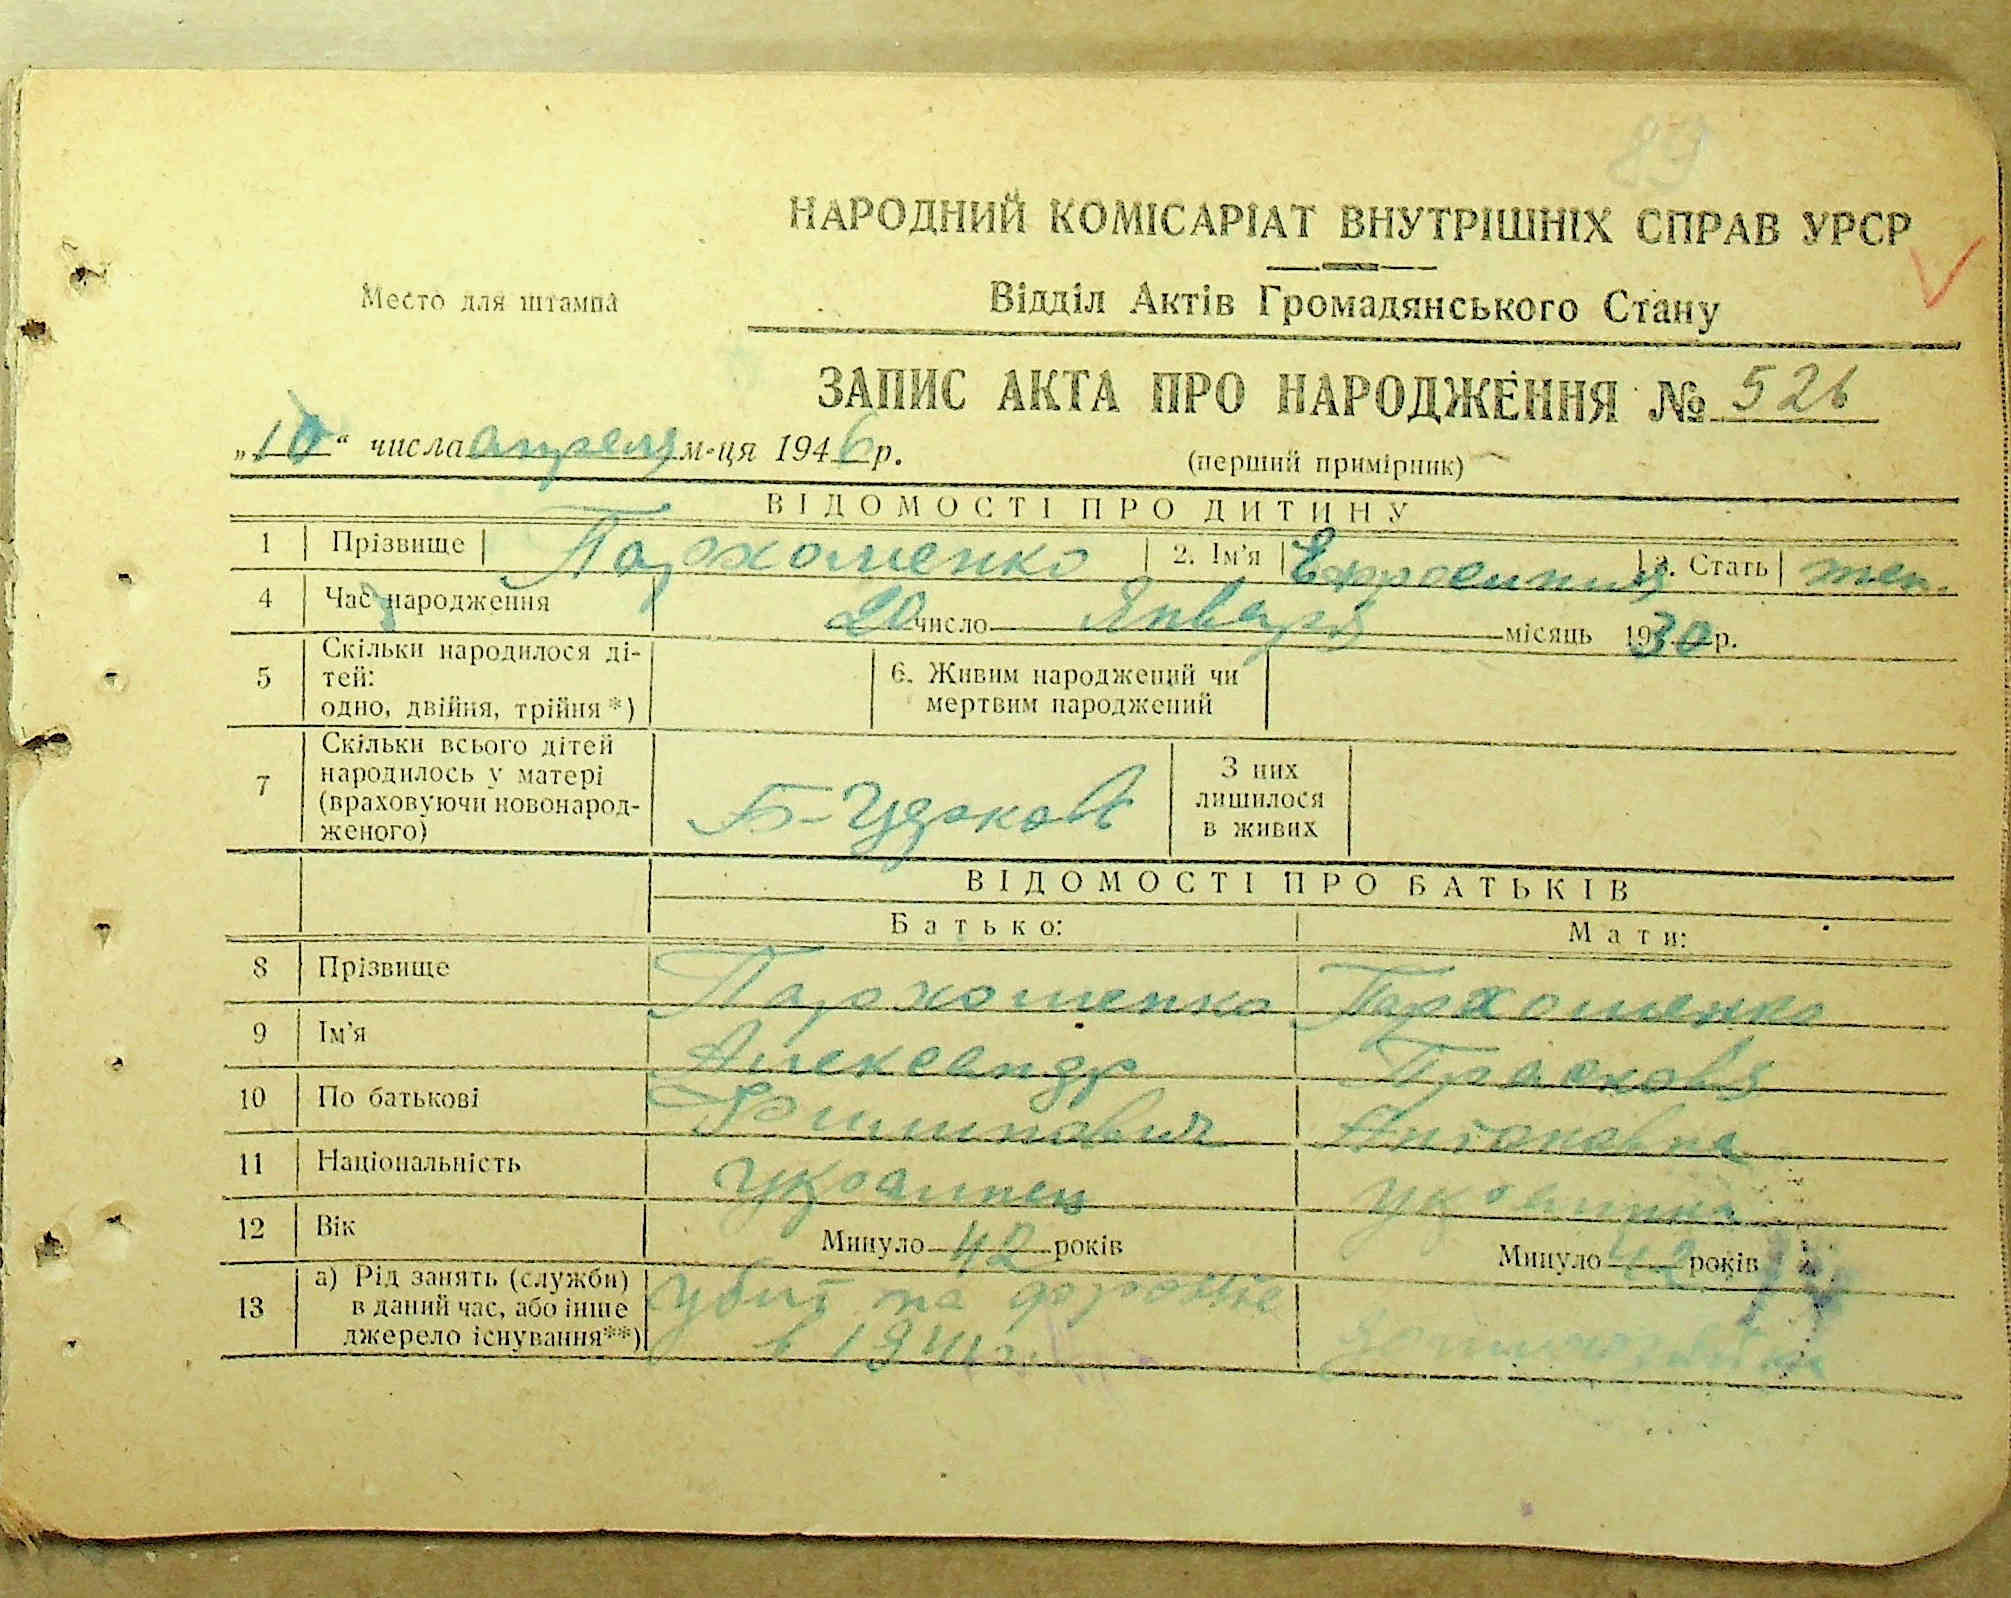 89
НАРОДНИЙ КОМІСАРІАТ ВНУТРІШНІХ СПРАВ УРСР
Место для штампа
Відділ Актів Громадянського Стану
ЗАПИС АКТА ПРО НАРОДЖЕННЯ № 526
„10“ числа апреля м-ця 1946 р.
(перший примірник)
ВІДОМОСТІ ПРО ДИТИНУ
1 Прізвище Пархоменко 2. Ім'я Ефросиния 3. Стать жен.
4 Час народження 20 число Января місяць 1930 р.
5 Скільки народилося ді-
тей:
одно, двійня, трійня *)
6. Живим народжений чи
мертвим народжений
7 Скільки всього дітей
народилось у матері
(враховуючи новонарод-
женого)
З них
лишилося
в живих
ВІДОМОСТІ ПРО БАТЬКІВ
Батько: Мати:
8 Прізвище Пархоменко Пархоменко
9 Ім'я Александр Прасковя
10 По батькові Филипович Антоновна
11 Національність украинец украинка
12 Вік Минуло 42 років Минуло 42 років
13 а) Рід занять (служби)
в даний час, або інше
джерело існування**)
убит на фронте
в 1941 г.
домохозяйка